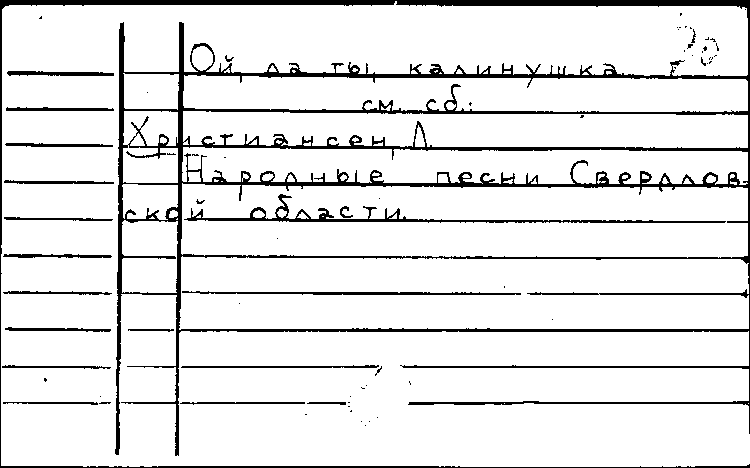 Ой, да ты, калинушка
см. сб.:
Христиансен, Л.
Народные песни Свердлов-
ской области.